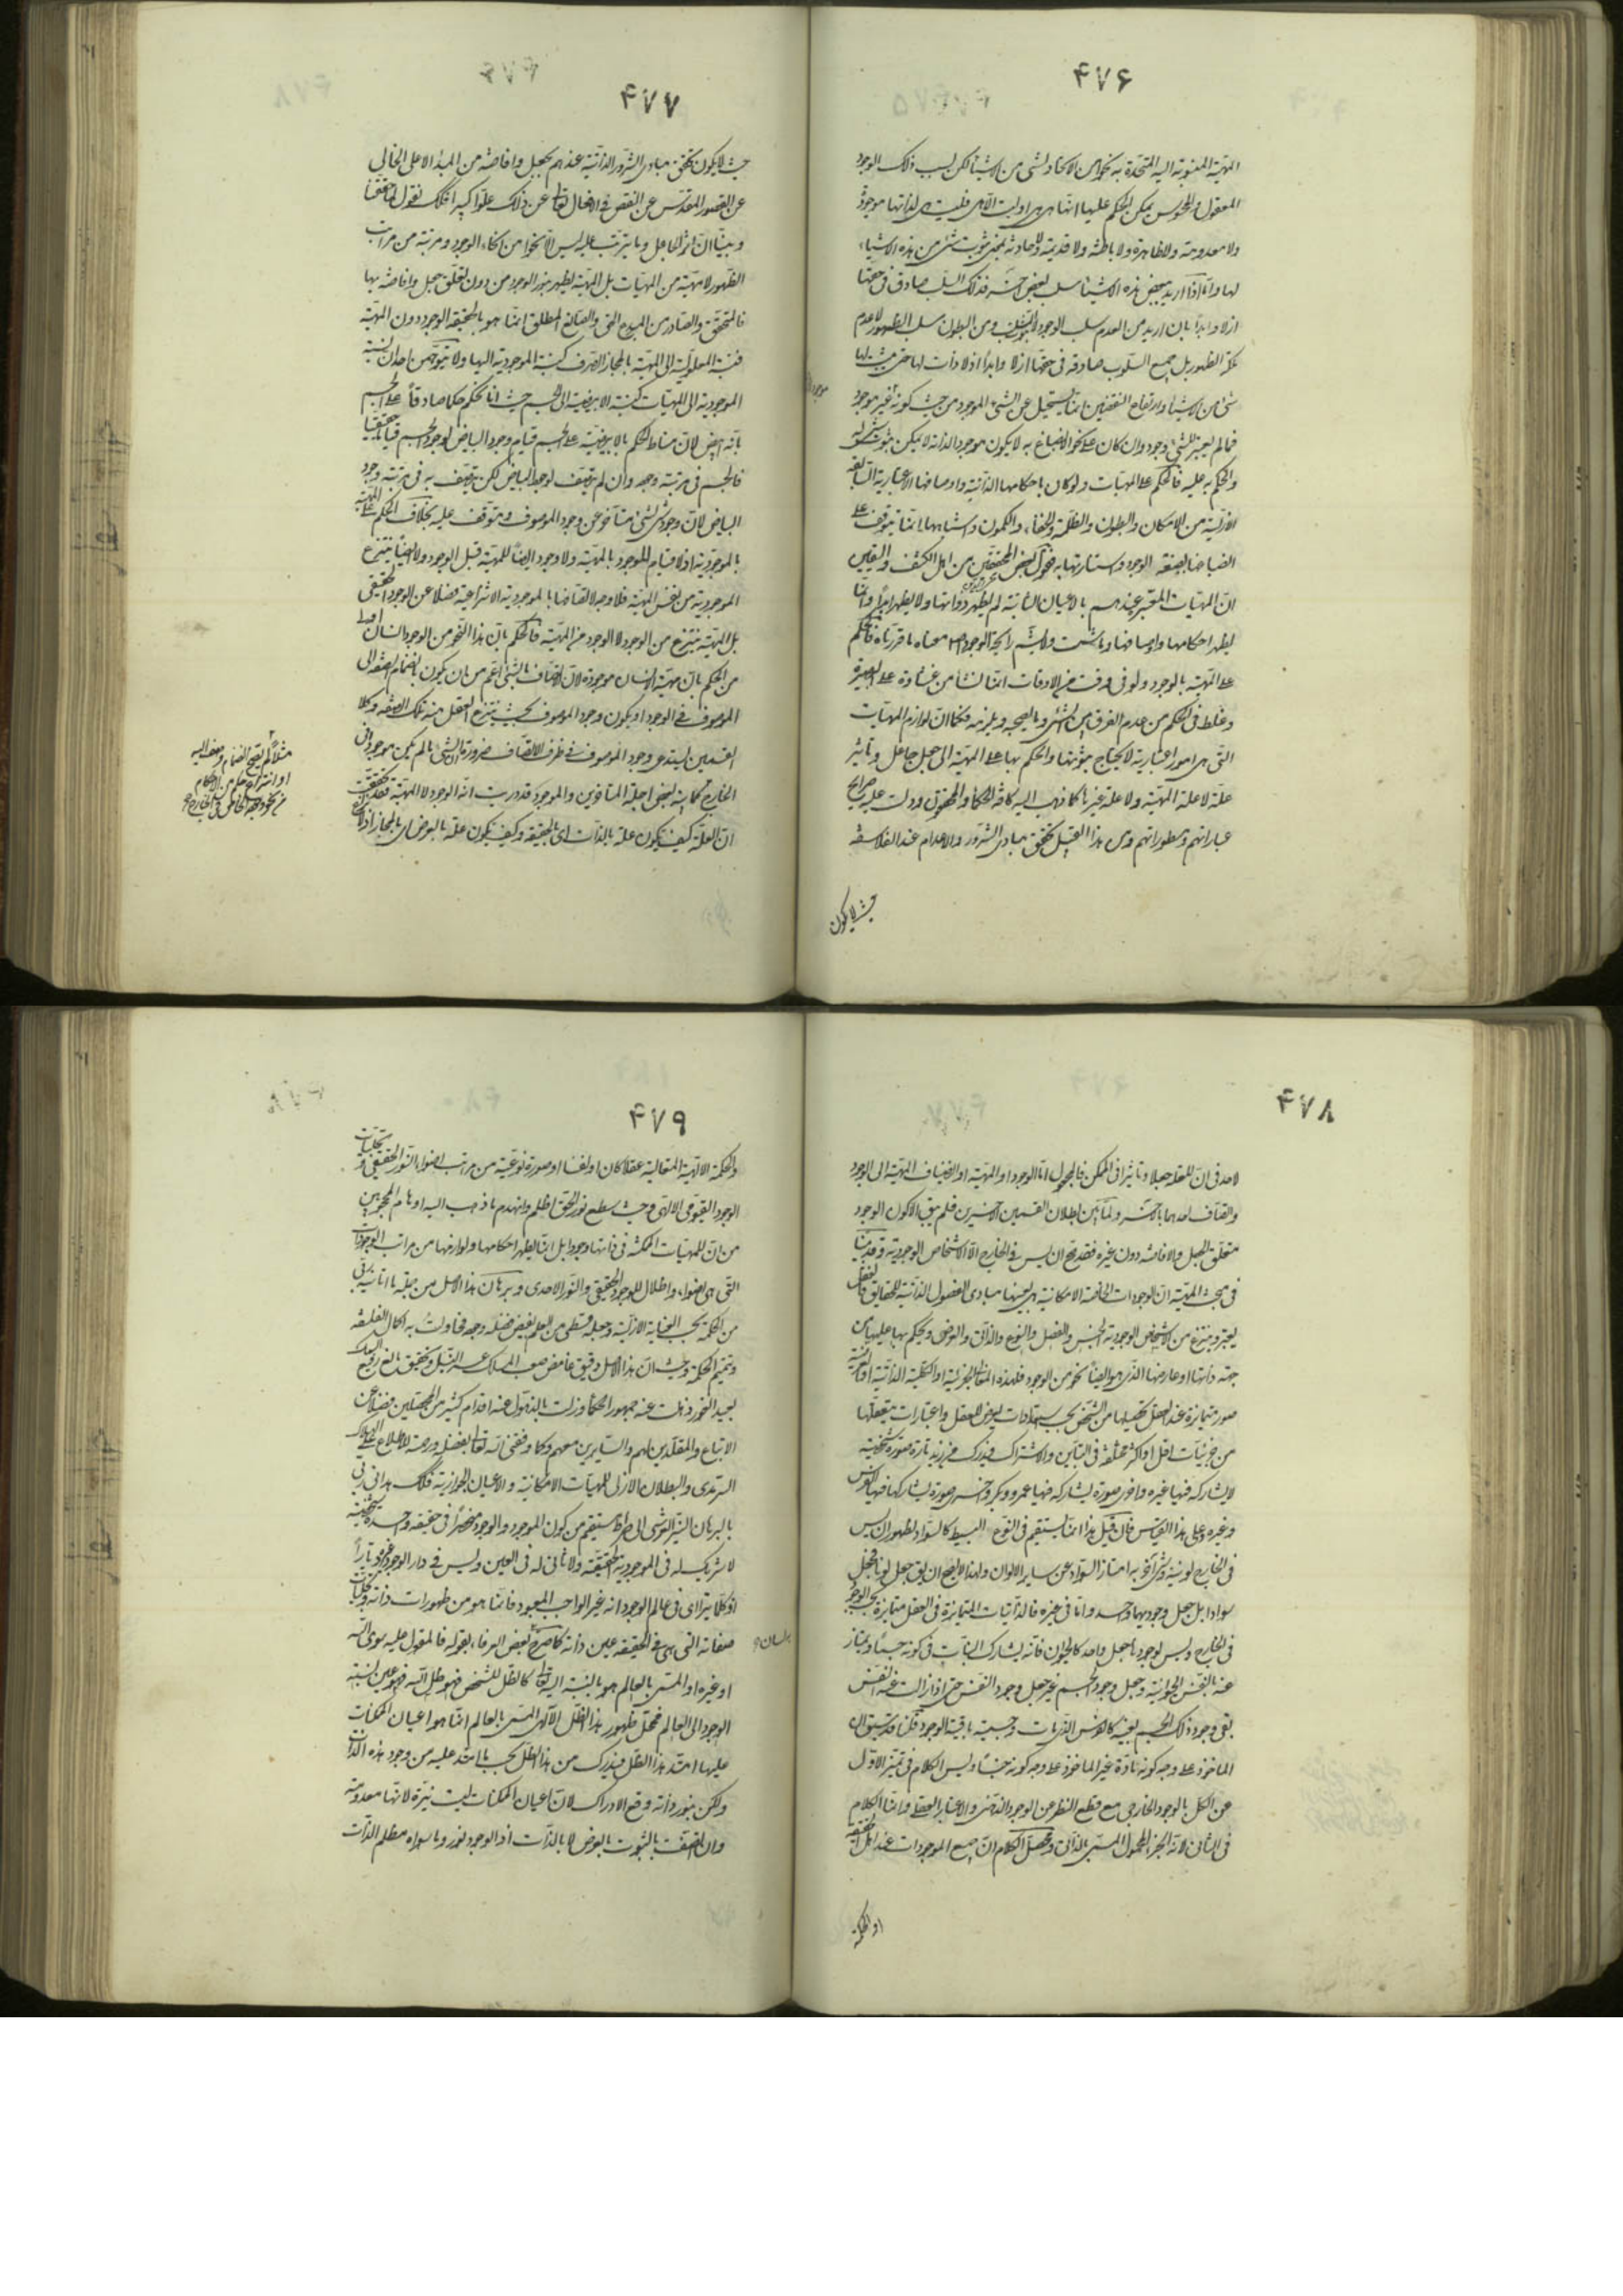 ۴۷۶
المهیة المنسوبة الیه المتحدة به نحوا من الاتحاد لشی من الاشیا لکن بسبب ذلک الوجود
المعقول او المحسوس یمکن الحکم علیها انها هی هی او لیست الا هی فلیست هی لذاتها موجودة
ولا معدومة ولا ظاهرة ولا باطنة ولا قدیمة ولا حادثة بمعنی ثبوت شی من هذه الاشیاء
لها واما اذا ارید ببعض هذه الاشیا سلب بعض اخر فذلک السلب صادق فی حقها
ازلا وابدا بان ارید من العدم سلب الوجود لا ثبوت السلب ومن البطون سلب الظهور لا عدم
ملکة الظهور بل جمیع السلوب صادقة فی حقها ازلا وابدا اذ لا ذات لها حتی یثبت لها
شی من الاشیا وارتفاع النقیضین انما یستحیل عن الشی الموجود من حیث کونه موجود
فما لم یعتبر للشی وجود وان کان علی نحو الانصباغ به لا یکون موجود الذاته لا یمکن ثبوت شی له
والحکم به علیه فالحکم علی المهیات ولو کان باحکامها الذاتیة واوصافها الاعتباریة السابقة
الازلیة من الامکان والبطون والظلمة والخفاء والکمون واشباهها انما یتوقف علی
انصباغها بصبغة الوجود واستنارتها به فقول بعض المحققین من اهل الکشف والیقین
ان المهیات المعبر عندهم بالاعیان الثابتة لم یظهر ذواتها ولا یظهر ابدا وانما
یظهر احکامها واوصافها وما شمت ولا تشم رایحة الوجود اصلا معناه ما قررناه فالحکم
علی المهیة بالوجود ولو فی وقت من الاوقات انما نشا من غشاوة علی البصیرة
وغلط فی الحکم من عدم الفرق بین الشی وما یصحبه ویلزمه فکما ان لوازم المهیات
التی هی امور اعتباریة لا یحتاج ثبوتها والحکم بها علی المهیة الی جعل جاعل وتاثیر
علة لا علة المهیة ولا علة غیرها کما ذهب الیه کافة الحکما والمحققون ودلت علیه صرایح
عباراتهم ومسطوراتهم ومن هذا القبیل تحقق مبادی الشرور والاعدام عند الفلاسفة
حیث لا یکون
۴۷۷
حیث لا یکون تحقق مبادی الشرور الذاتیة عندهم بجعل وافاضة من المبدأ الاعلی الخالی
عن القصور المقدس عن النقص فی الافعال تعالی عن ذلک علوا کبیرا فلک نقول لما حققنا
وبینا ان اثر الجاعل وما یترتب علیه لیس الا نحوا من انحاء الوجود ومرتبة من مراتب
الظهور لا مهیة من المهیات بل المهیة یظهر بنور الوجود من دون تعلق جعل وافاضة بها
فالمتحقق والصادر من المبدع الحق والصانع المطلق انما هو بالحقیقة الوجود دون المهیة
فنسبة المعلولیة الی المهیة بالمجاز الصرف کنسبة الموجودیة الیها ولا یتوهمن احد ان نسبة
الموجودیة الی المهیات کنسبة الابیضیة الی الجسم حیث انا نحکم حکما صادقا علی الجسم
بانه ابیض لان مناط الحکم بالابیضیة علی الجسم قیام وجود البیاض لوجود الجسم قیاما حقیقیا
فالجسم فی مرتبة وجوده وان لم یتصف بوجود البیاض لکن یتصف به فی مرتبة وجود
البیاض لان وجود شی لشی متاخر عن وجود الموصوف ومتوقف علیه بخلاف الحکم علی المهیة
بالموجودیة اذ لا قیام للوجود بالمهیة ولا وجود ایضا للمهیة قبل الوجود ولا ایضا ینتزع
الموجودیة من نفس المهیة فلا وجه لاتصافها بالموجودیة الانتزاعیة فضلا عن الوجود الحقیقی
بل المهیة ینتزع من الوجود لا الوجود من المهیة فالحکم بان هذا النحو من الوجود انسان اولی
من الحکم بان مهیة الانسان موجودة لان الاتصاف بالشی اعم من ان یکون بانضمام الصفة الی
الموصوف فی الوجود او یکون وجود الموصوف بحیث ینتزع العقل منه تلک الصفة وکلا
القسمین یستدعی وجود الموصوف فی ظرف الاتصاف ضرورة ان الشی ما لم یکن موجودا فی
الخارج کما بینه بعض اجلة المتاخرین والموجود قد دریت انه الوجود لا المهیة فقد تحقق
ان العلة کیف یکون علة بالذات ای بالحقیقة وکیف یکون علة بالعرض ای بالمجاز اذ لا نزاع
مثلا لم یصح انضمام وصف الیه
او انتزاع حکم من الاحکام
من نحو وجوده الخاص فی الخارج
۴۷۸
لاحد فی ان للعلة جعلا وتاثیرا فی الممکن فالمجعول اما الوجود او المهیة او انضیاف المهیة الی الوجود
واتصاف احدهما بالاخر ولما تبین بطلان القسمین الاخیرین فلم یبق الا کون الوجود
متعلق الجعل والافاضة دون غیره فقد وضح ان لیس فی الخارج الا الاشخاص الوجودیة وقد بینا
فی مبحث المهیة ان الوجودات الخاصة الامکانیة هی بعینها مبادی الفصول الذاتیة للحقایق فالعقل
یعتبر وینتزع من الاشخاص الوجودیة الجنس والفصل والنوع والذاتی والعرضی ویحکم بها علیها من
جهة ذاتها او عارضها الذی هو ایضا نحو من الوجود فلهذه المعانی الجزئیة او الکلیة الذاتیة او العرضیة
صور متمایزة عند العقل یحصلها من الشخص بحسب استعدادات یعرض للعقل واعتبارات یتعقلها
من جزئیات اقل او اکثر مختلفة فی التباین والاشتراک فیدرک من زید تارة صورة شخصیة
لا یشارکه فیها غیره واخری صورة یشارکه فیها عمرو وبکر واخری صورة یشارکه فیها الفرس
وغیره وعلی هذا القیاس فان قیل هذا انما یستقیم فی النوع البسیط کالسواد لظهور ان لیس
فی الخارج لونیة وشی اخر به امتاز السواد عن سایر الالوان ولهذا لا یصح ان یقال جعل لونا فجعل
سوادا بل جعل وجودیهما واحد واما فی غیره فالذاتیات المتمایزة فی العقل متمایزة بحسب الوجود
فی الخارج ولیس لوجودها جعل واحد کالحیوان فانه یشارک النبات فی کونه جسما ویمتاز
عنه بالنفس الحیوانیة وجعل وجود الجسم غیر جعل وجود النفس حتی اذا زالت عنه النفس
بقی وجود ذلک الجسم بعینه کالفرس الذی مات وجسمیته باقیة الوجود قلنا قد سبق ان
الماخوذ علی وجه کونه مادة غیر الماخوذ علی وجه کونه جنسا ولیس الکلام فی تمیز الاول
عن الکل بالوجود الخارجی مع قطع النظر عن الوجود الذهنی والاعتبار العقلی وانما الکلام
فی الثانی لانه الجزء المحمول المسمی بالذاتی ومحصل الکلام ان جمیع الموجودات عند اهل الحقیقة
او الحکمة
۴۷۹
والحکمة الالهیة المتعالیة عقلا کان او نفسا او صورة نوعیة من مراتب اضواء النور الحقیقی وتجلیات
الوجود القیومی الالهی وحیث سطع نور الحق اظلم وانهدم ما ذهب الیه اوهام المحجوبین
من ان للمهیات الممکنة فی ذاتها وجودا بل انما یظهر احکامها ولوازمها من مراتب الوجودات
التی هی اضواء واظلال للوجود الحقیقی والنور الاحدی وبرهان هذا الاصل من جملة ما اتانیه ربی
من الحکمة بحسب العنایة الازلیة وجعله قسطی من العلم بفیض فضله وجوده فحاولت به اکمال الفلسفة
وتتمیم الحکمة وحیث ان هذا الاصل دقیق غامض صعب المسلک عسیر النیل وتحقیق بالغ رفیع السمک
بعید الغور ذهلت عنه جمهور الحکما وزلت بالذهول عنه اقدام کثیر من المحصلین فضلا عن
الاتباع والمقلدین لهم والسایرین معهم وکما وفقنی الله تعالی بفضله ورحمته للاطلاع علی الهلاک
السرمدی والبطلان الازلی للمهیات الامکانیة والاعیان الجوازیة فکذلک هدانی ربی
بالبرهان النیر العرشی الی صراط مستقیم من کون الموجود والوجود منحصرا فی حقیقة واحدة شخصیة
لا شریک له فی الموجودیة الحقیقیة ولا ثانی له فی العین ولیس فی دار الوجود غیره دیارا
وکلما یترائی فی عالم الوجود انه غیر الواجب المعبود فانما هو من ظهورات ذاته وتجلیات
صفاته التی هی فی الحقیقة عین ذاته کما صرح به بعض العرفا بقوله فالمقول علیه سوی الله
او غیره او المسمی بالعالم هو بالنسبة الیه تعالی کالظل للشخص فهو ظل الله فهو عین نسبة
الوجود الی العالم فمحل ظهور هذا الظل الالهی المسمی بالعالم انما هو اعیان الممکنات
علیها امتد هذا الظل فیدرک من هذا الظل بحسب ما امتد علیه من وجود هذه الذات
ولکن بنور ذاته وقع الادراک لان اعیان الممکنات لیست نیرة لانها معدومة
وان اتصفت بالثبوت بالعرض لا بالذات اذ الوجود نور وما سواه مظلم الذات